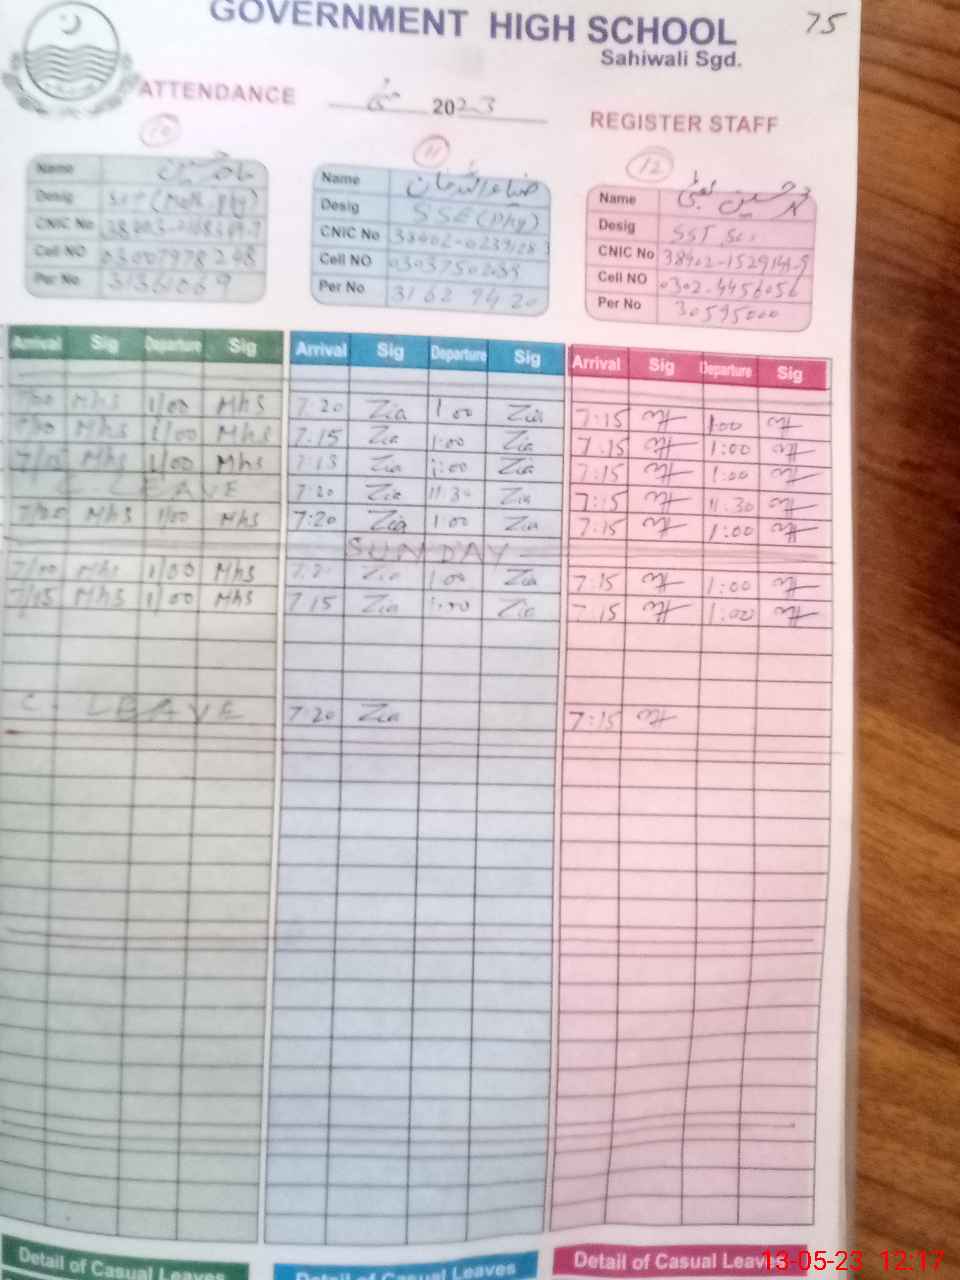 75
GOVERNMENT HIGH SCHOOL
Sahiwali Sgd.
ATTENDANCE مئی 2023 REGISTER STAFF
10 11 12
Name
Desig SST (Math, Phy)
CNIC No
Cell NO 03007978248
Per No 31361069
Name ضیاء الرحمان
Desig SSE (Phy)
CNIC No
Cell NO
Per No 31629420
Name
Desig SST Sci
CNIC No
Cell NO 0302-4456056
Per No 30595000
Arrival Sig Departure Sig Arrival Sig Departure Sig Arrival Sig Departure Sig
Mhs 1/00 Mhs 7:20 Zia 1:00 Zia 7:15 1:00
Mhs 1/00 Mhs 7:15 Zia 1:00 Zia 7:15 1:00
Mhs 1/00 Mhs 7:15 Zia 1:00 Zia 7:15 1:00
C. LEAVE 7:20 Zia 11:30 Zia 7:15 11:30
Mhs 1/00 Mhs 7:20 Zia 1:00 Zia 7:15 1:00
SUNDAY
7/00 Mhs 1/00 Mhs Zia 1:00 Zia 7:15 1:00
7/15 Mhs 1/00 Mhs 7:15 Zia 1:00 Zia 7:15 1:00
C. LEAVE 7:20 Zia 7:15
Detail of Casual Leaves Detail of Casual Leaves Detail of Casual Leaves
13-05-23 12:17